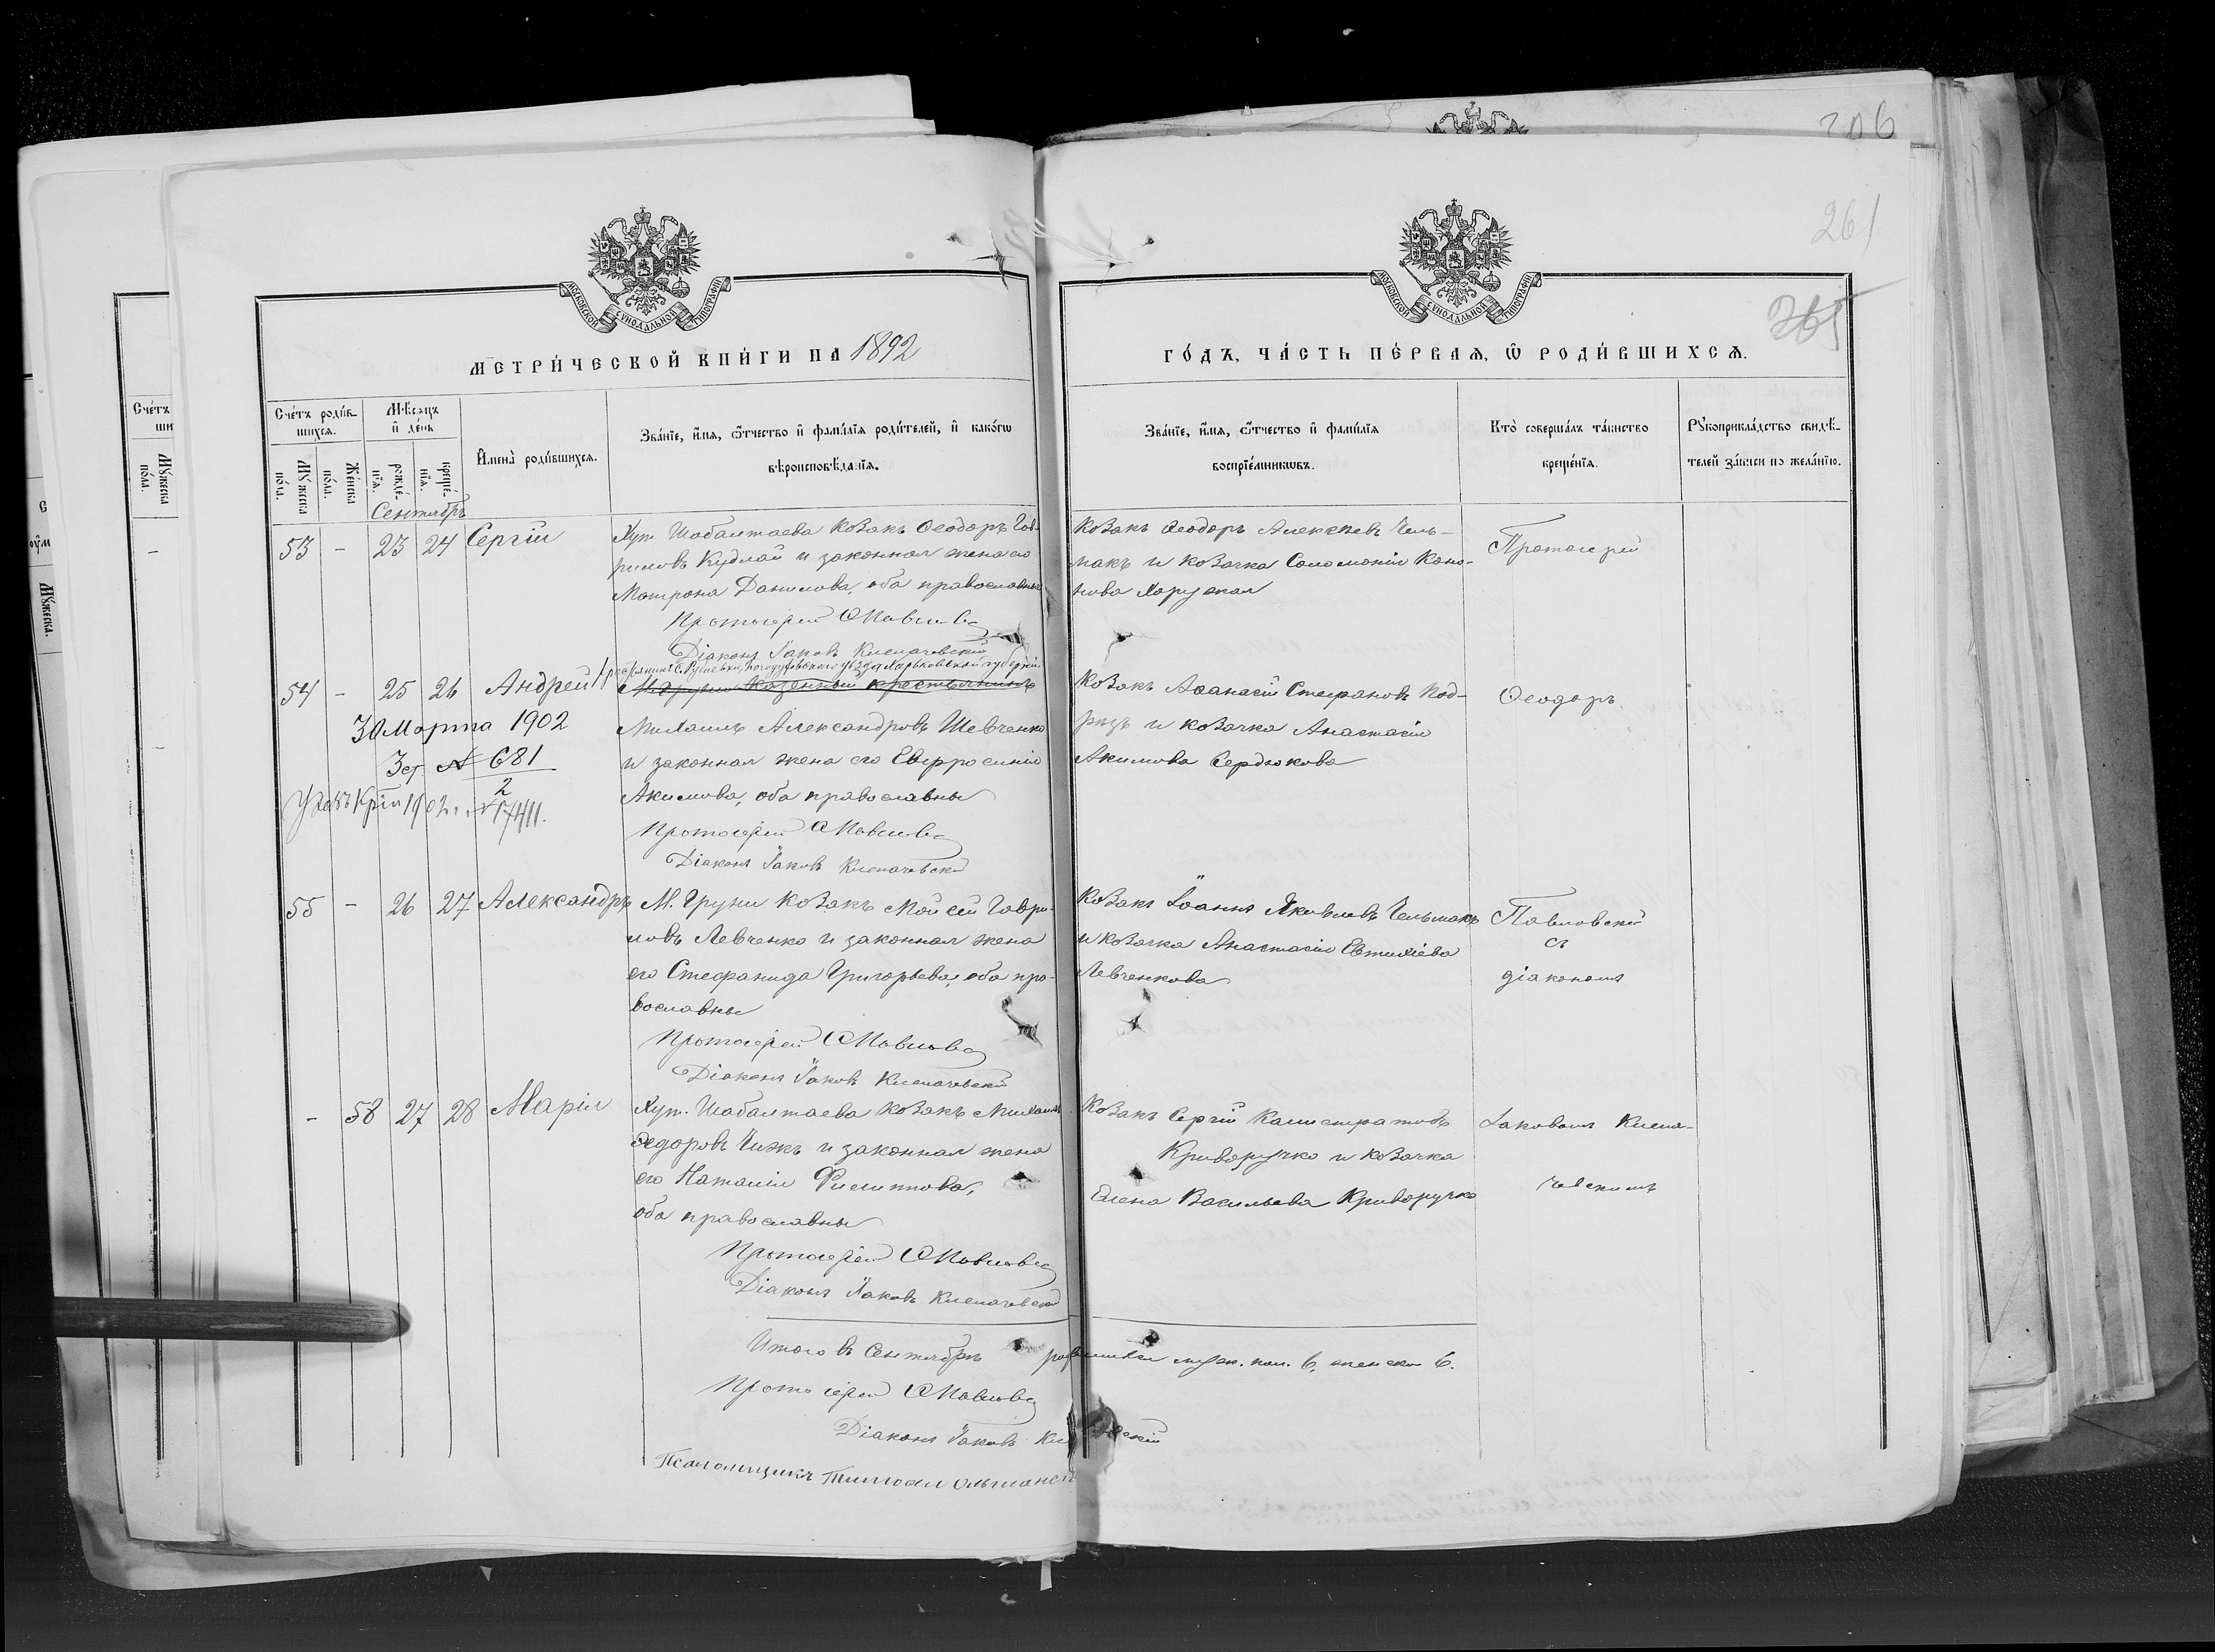 206
261
265
МОСКОВСКОЙ СѴНОДАЛЬНОЙ ТИПОГРАФІИ
МОСКОВСКОЙ СѴНОДАЛЬНОЙ ТИПОГРАФІИ
МЕТРИ́ЧЕСКОЙ КНИ́ГИ НА 1892
ГО́ДЪ, ЧА́СТЬ ПЕ́РВАѦ, Ѡ҆ РОДИ́ВШИХСѦ.
Сче́тъ роди́в-
шихсѧ.
Мѣ́сѧцъ
и҆ де́нь
Мꙋ́жеска
по́ла.
Же́нска
по́ла.
рожде́-
нїѧ.
креще́-
нїѧ.
И҆мена̀ роди́вшихсѧ.
Зва́нїе, и҆́мѧ, ѻ҆́тчество и҆ фами́лїѧ роди́телей, и҆ како́гѡ
вѣроисповѣ́данїѧ.
Зва́нїе, и҆́мѧ, ѻ҆́тчество и҆ фами́лїѧ
воспрїе́мникѡвъ.
Кто̀ соверша́лъ та́инство
креще́нїѧ.
Рꙋкоприкла́дство свидѣ́-
телей за́писи по жела́нїю.
Сче́тъ
ши
Мꙋ́жеска
по́ла.
Мꙋ́жеска.
Сентябрь
53 - 23 24 Сергій
Хут. Шабалтаева козакъ Ѳеодоръ Гав-
риловъ Кудлай и законная жена его
Матрона Данилова, оба православные
Протоіерей С Павловс
Діаконъ Іаковъ Клепачевскій
Козакъ Ѳеодоръ Алексѣевъ Чель-
макъ и козачка Соломонія Коно-
нова
Протоіерей
54 - 25 26 Андрей
Крестьянинъ с. Рубл Богодуховскаго уѣзда Харьковской губерніи
М. Груни казенный крестьянинъ
Михаилъ Александровъ Шевченко
и законная жена его Евфросинія
Акимова, оба православны
Протоіерей С Павловс
Діаконъ Іаковъ Клепачевскій
30 Марта 1902
№ 681
2
1902 г.
Козакъ Аѳанасій Стефановъ Под-
рѣзъ и козачка Анастасія
Акимова Сердюкова
Ѳеодоръ
55 - 26 27 Александръ
М. Груни козакъ Мойсей Гаври-
ловъ Левченко и законная жена
его Стефанида Григорьева, оба пра-
вославны
Протоіерей С Павловс
Діаконъ Іаковъ Клепачевскій
Козакъ Іоаннъ Яковлевъ Чельмакъ
и козачка Анастасія Евтихіева
Левченкова
Павловскій
съ
діакономъ
- 58 27 28 Марія
Хут. Шабалтаева козакъ Михаилъ
Ѳедоровъ Чижъ и законная жена
его Наталія Филиппова,
оба православны
Протоіерей С Павловс
Діаконъ Іаковъ Клепачевскій
Козакъ Сергій Калистратовъ
Криворучко и козачка
Елена Васильева Криворучко
Іаковомъ Клепа-
чевскимъ
Итого въ Сентябрѣ родившихся муж. пол. 6, женска 6.
Протоіерей С Павловс
Діаконъ Іаковъ
Псаломщикъ Тимоѳей Ольшанск